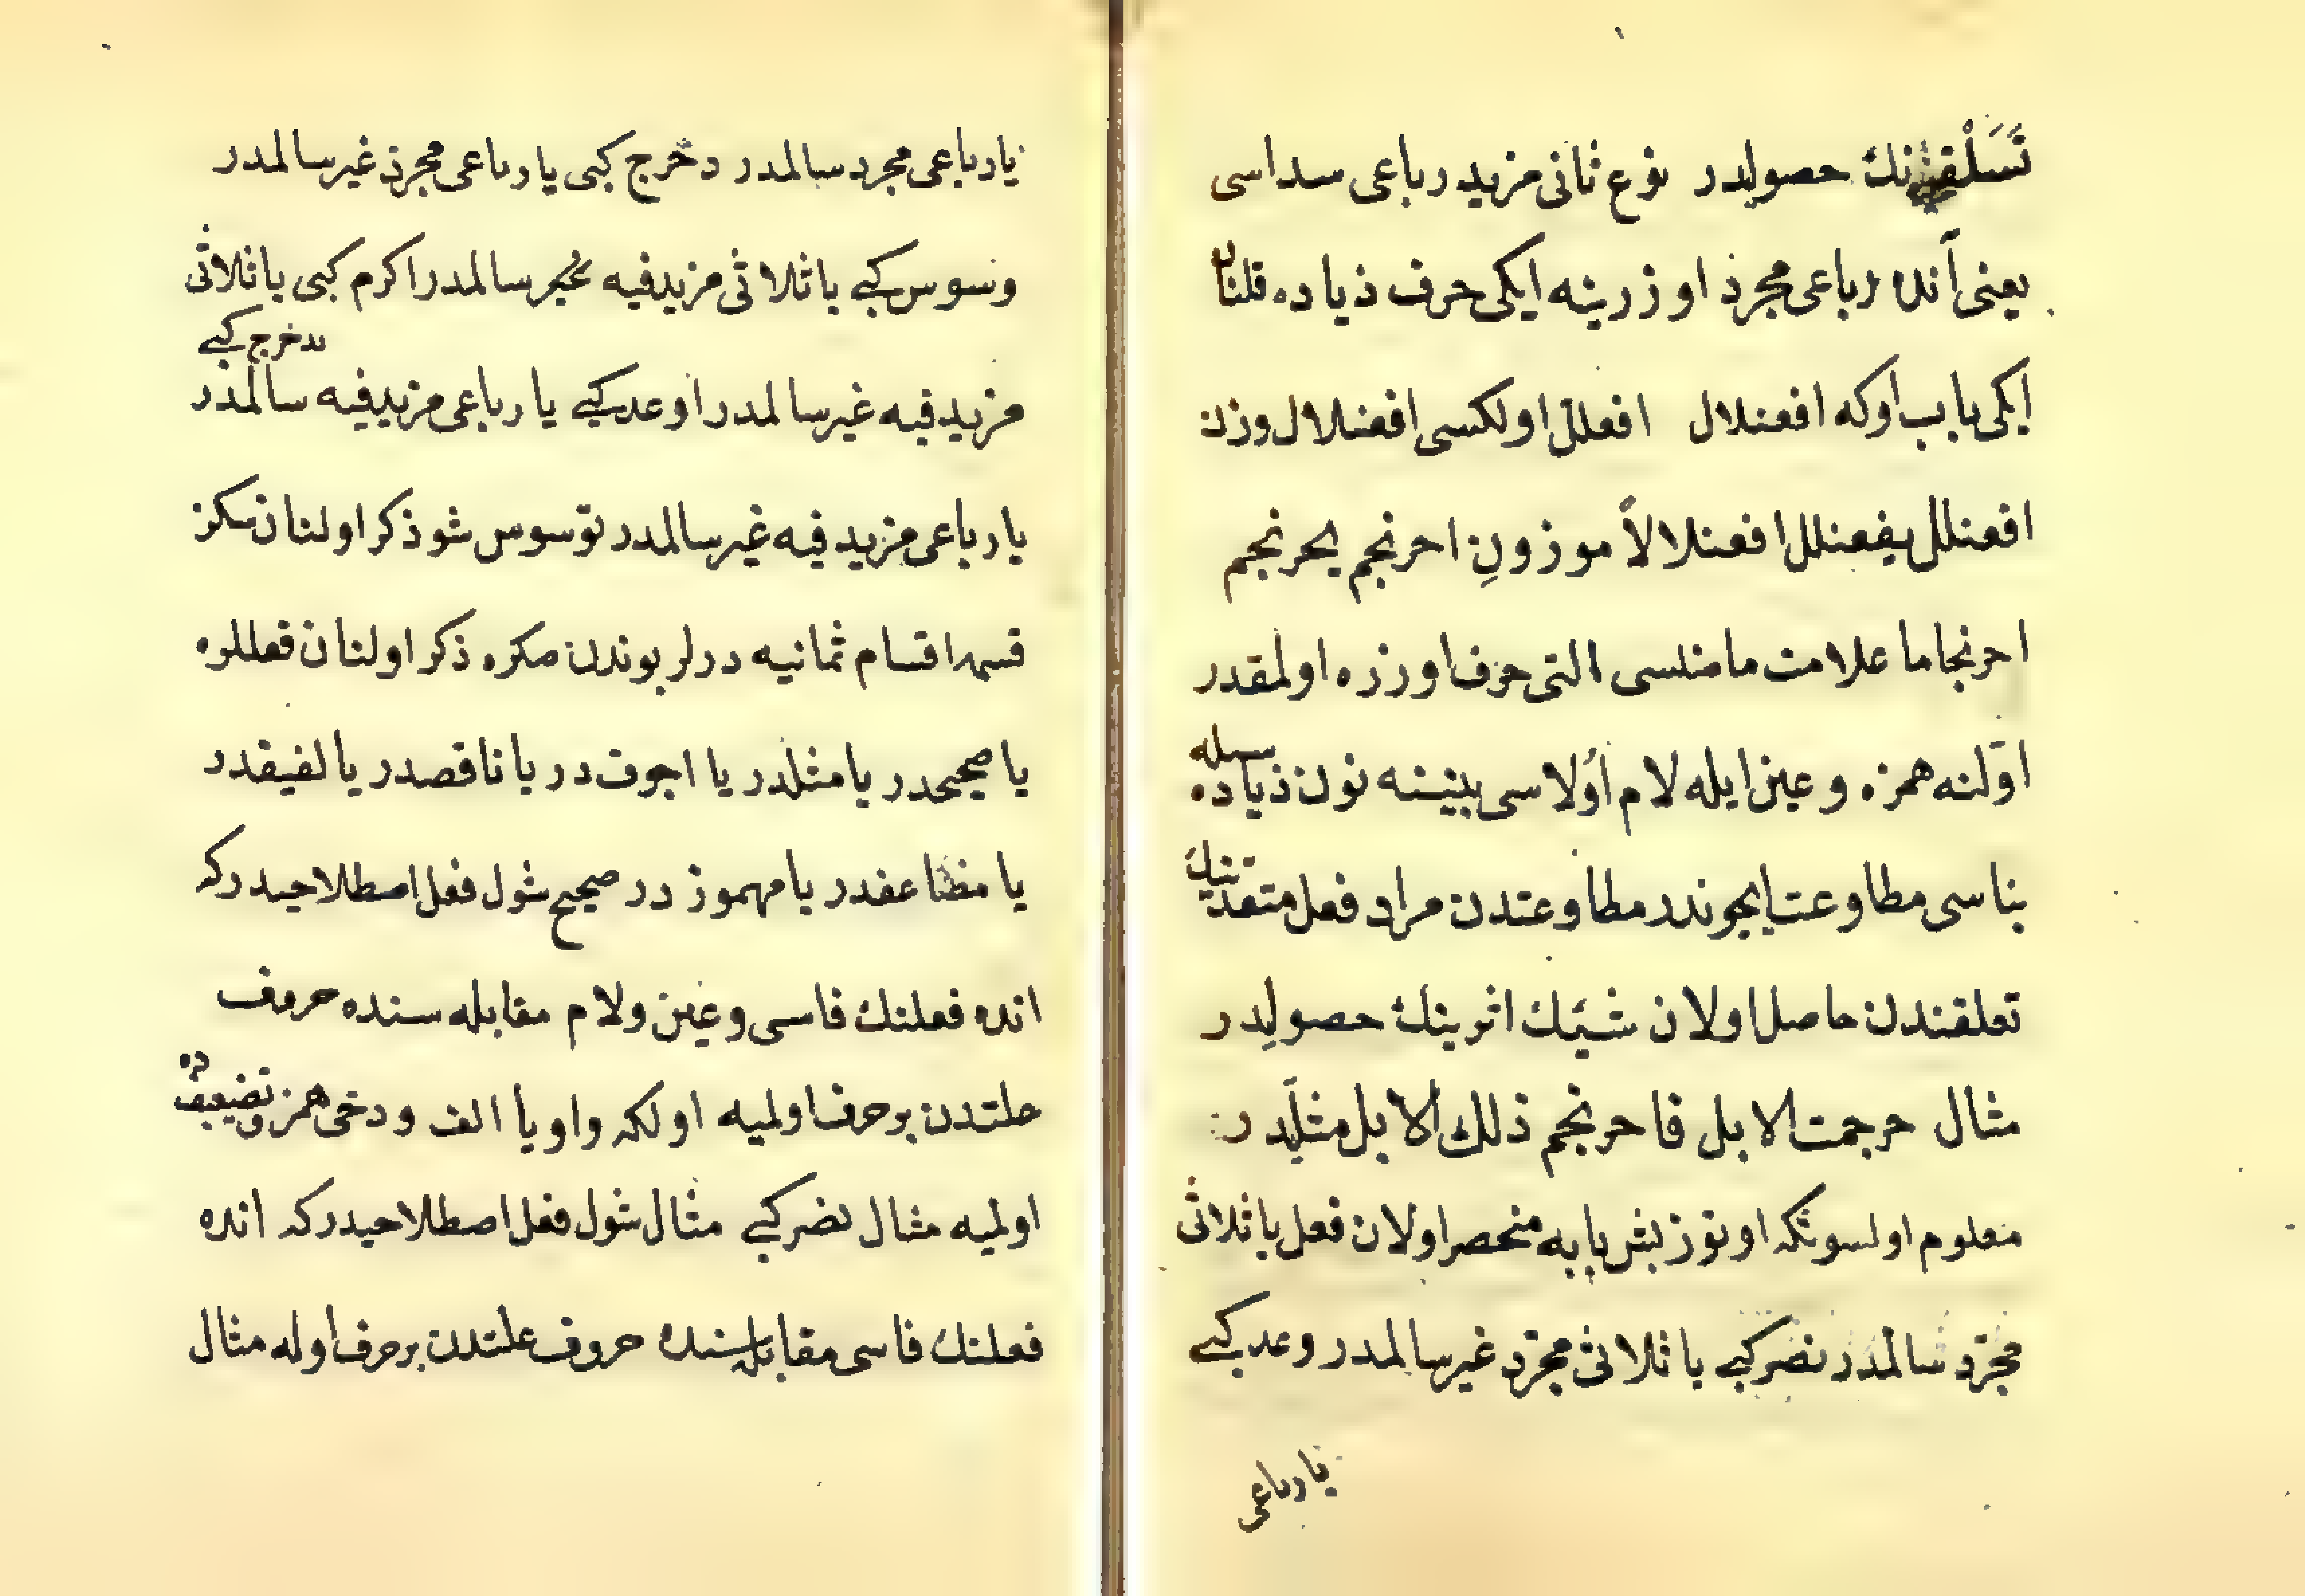 تَسَلْقِينك حصولدر نوع ثانى مزيد رباعى سداسى
يعنى آنده رباعى مجرد اوزرينه ايكى حرف ذياده قلنان
ايكى بابب اوكه افعنلال افعلل اولكسى افعنلال وزن
افعنلل يفعنلل افعنلالاً موزونِ احرنجم يحرنجم
احرنجاما علامت ماضلسى التى حرف اورزه اولمقدر
اوّلنه همزه و عين ايله لام اُولاسى بيننه نون ذياده سيله
بناسى مطاوعت ايچوندر مطاوعتدن مراد فعل متعدّينك
تعلقندن حاصل اولان شيئك اثرينك حصولِدر
مثال حرجمت الابل فاحرنجم ذلك الابل مثلِدر
معلوم اولسونكه اوتوز بش بابه منحصر اولان فعل يا ثلاثى
مجرّد سالمدر نصر كبى يا ثلاثى مجرّد غيرسالمدر وعد كبى
يا رباعى
يا رباعى مجرد سالمدر دحرج كبى يا رباعى مجرد غيرسالمدر
وسوس كبى يا ثلاثى مزيدفيه غيرسالمدر اكرم كبى يا ثلاثى
مزيد فيه غيرسالمدر اوعد كبى يا رباعى مزيدفيه سالمدر تدحرج كبى
يا رباعى مزيد فيه غيرسالمدر توسوس شو ذكر اولنان سكز
قسمه اقسام ثمانيه درلر بوندن صكره ذكر اولنان فعللره
يا صحيحدر يا مثلدر يا اجوف در يا ناقصدر يا لفيفدر
يا مضاعفدر يا مهموز در صحيح شول فعل اصطلاحيدركه
انده فعلنك فاسى و عين و لام مقابله سنده حروف
علتدن برحرف اولميه اولكه واو يا الف و دخى همزه و تضعيف ده
اولميه مثال نصر كبى مثال شول فعل اصطلاحيدركه انده
فعلنك فاسى مقابله سنده حروف علتدن برحرف اوله مثال